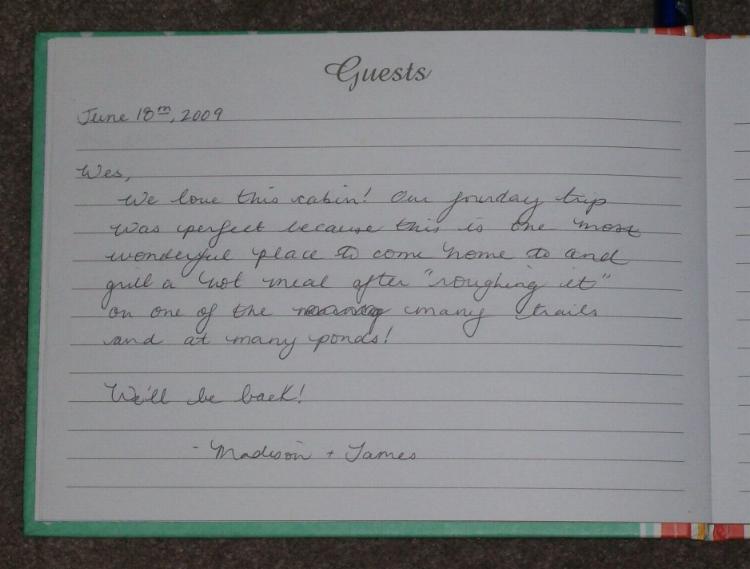 Guests
June 18th, 2009
Wes,
We love this cabin! Our fourday trip
was perfect because this is one most
wonderful place to come home to and
grill a hot meal after "roughing it"
on one of the many trails
and at many ponds!
We'll be back!
- Madison + James